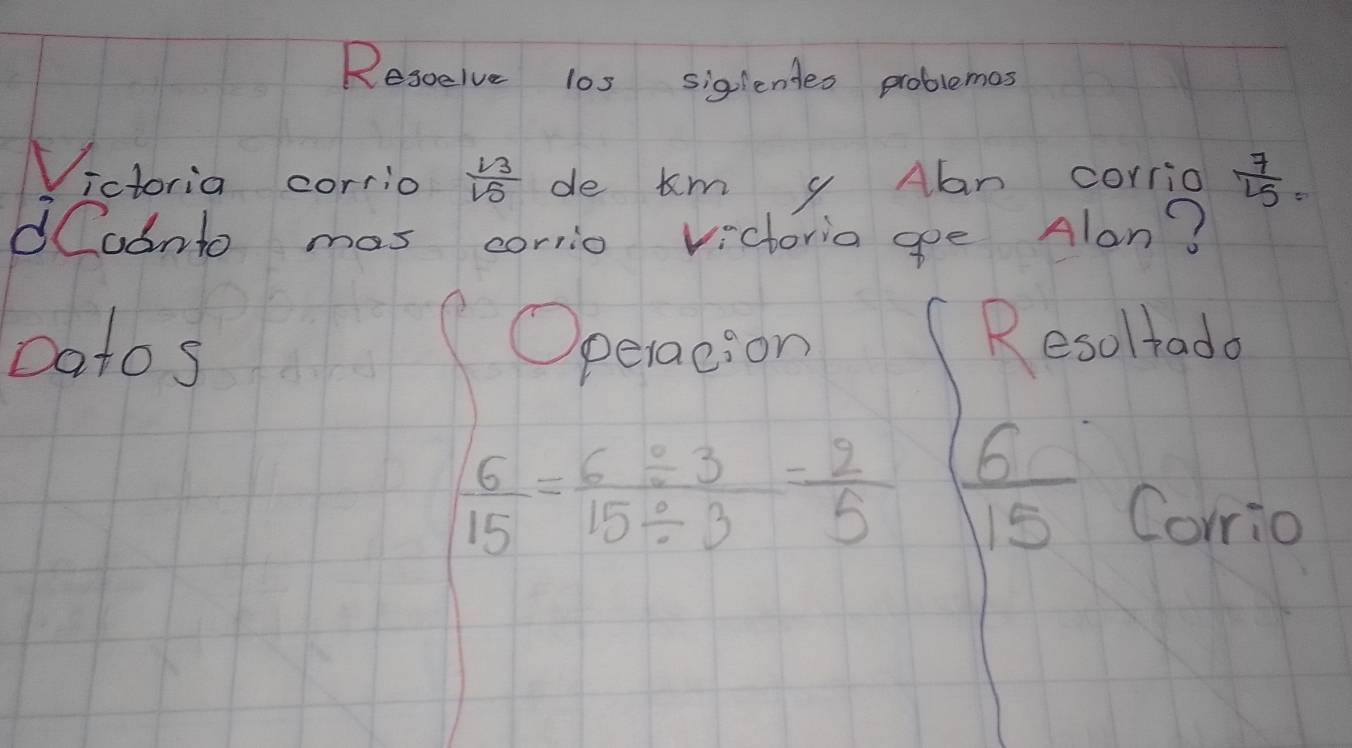 Resuelve los sigientes problemas
Victoria corrio 13/15 de km y Alan corrio 7/15.
¿Cuánto mas corrio Victoria que Alan?
Datos Operacion Resultado
6/15 = 6÷3/15÷3 = 2/5 6/15 Corrio